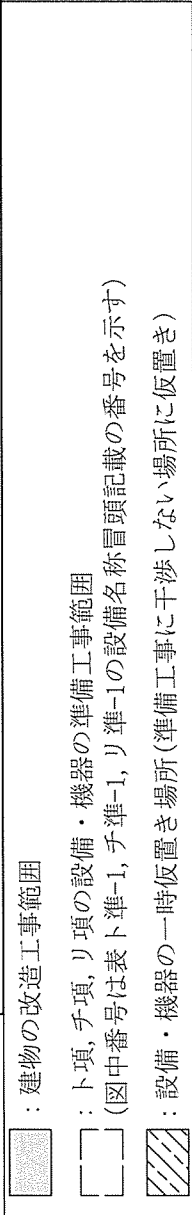 ：建物の改造工事範囲
：ト項, チ項, リ項の設備・機器の準備工事範囲
(図中番号は表ト準-1, チ準-1, リ準-1の設備名称冒頭記載の番号を示す)
：設備・機器の一時仮置き場所(準備工事に干渉しない場所に仮置き)